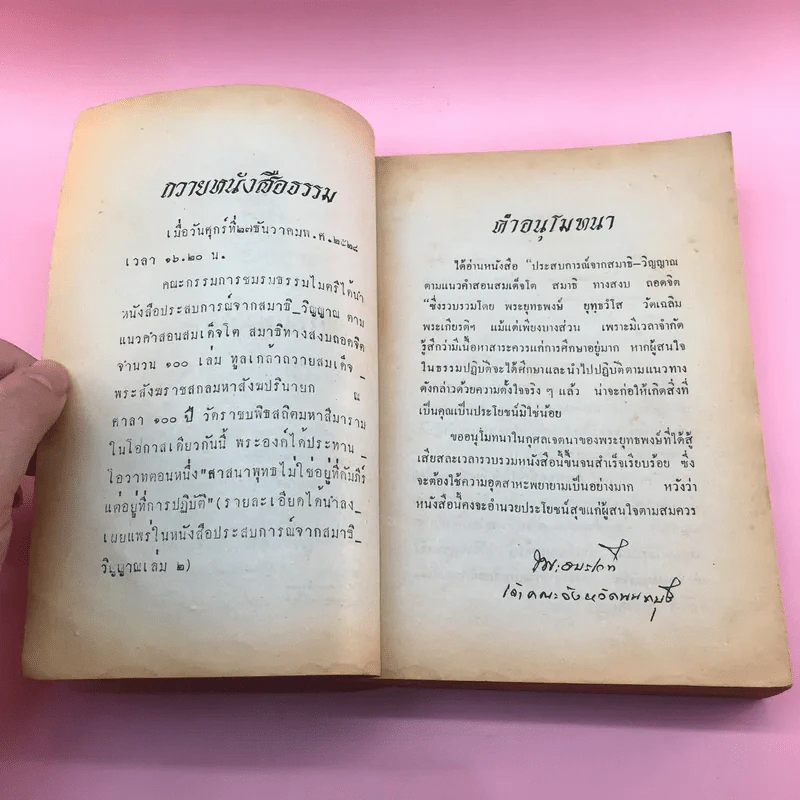 ถวายหนังสือธรรม
เมื่อวันศุกร์ที่๒๗ธันวาคมพ.ศ.๒๕๒๘
เวลา ๑๖.๒๐ น.
คณะกรรมการชมรมธรรมไมตรีได้นำ
หนังสือประสบการณ์จากสมาธิ_วิญญาณ ตาม
แนวคำสอนสมเด็จโต สมาธิทางสงบถอดจิต
จำนวน ๑๐๐ เล่ม ทูลเกล้าถวายสมเด็จ_
พระสังฆราชสกลมหาสังฆปรินายก ณ
ศาลา ๑๐๐ ปี วัดราชบพิธสถิตมหาสีมาราม
ในโอกาสเดียวกันนี้ พระองค์ได้ประทาน_
โอวาทตอนหนึ่ง"ศาสนาพุทธไม่ใช่อยู่ที่คัมภีร์
แต่อยู่ที่การปฏิบัติ"(รายละเอียดได้นำลง_
เผยแพร่ในหนังสือประสบการณ์จากสมาธิ_
วิญญาณเล่ม ๒)
คำอนุโมทนา
ได้อ่านหนังสือ "ประสบการณ์จากสมาธิ–วิญญาณ
ตามแนวคำสอนสมเด็จโต สมาธิ ทางสงบ ถอดจิต
"ซึ่งรวบรวมโดย พระยุทธพงษ์ ยุทฺธวํโส วัดเฉลิม
พระเกียรติฯ แม้แต่เพียงบางส่วน เพราะมีเวลาจำกัด
รู้สึกว่ามีเนื้อหาสาระควรแก่การศึกษาอยู่มาก หากผู้สนใจ
ในธรรมปฏิบัติจะได้ศึกษาและนำไปปฏิบัติตามแนวทาง
ดังกล่าวด้วยความตั้งใจจริง ๆ แล้ว น่าจะก่อให้เกิดสิ่งที่
เป็นคุณเป็นประโยชน์มิใช่น้อย
ขออนุโมทนาในกุศลเจตนาของพระยุทธพงษ์ที่ได้สู้
เสียสละเวลารวบรวมหนังสือนี้ขึ้นจนสำเร็จเรียบร้อย ซึ่ง
จะต้องใช้ความอุตสาหะพยายามเป็นอย่างมาก หวังว่า
หนังสือนี้คงจะอำนวยประโยชน์สุขแก่ผู้สนใจตามสมควร
เจ้าคณะจังหวัดนนทบุรี